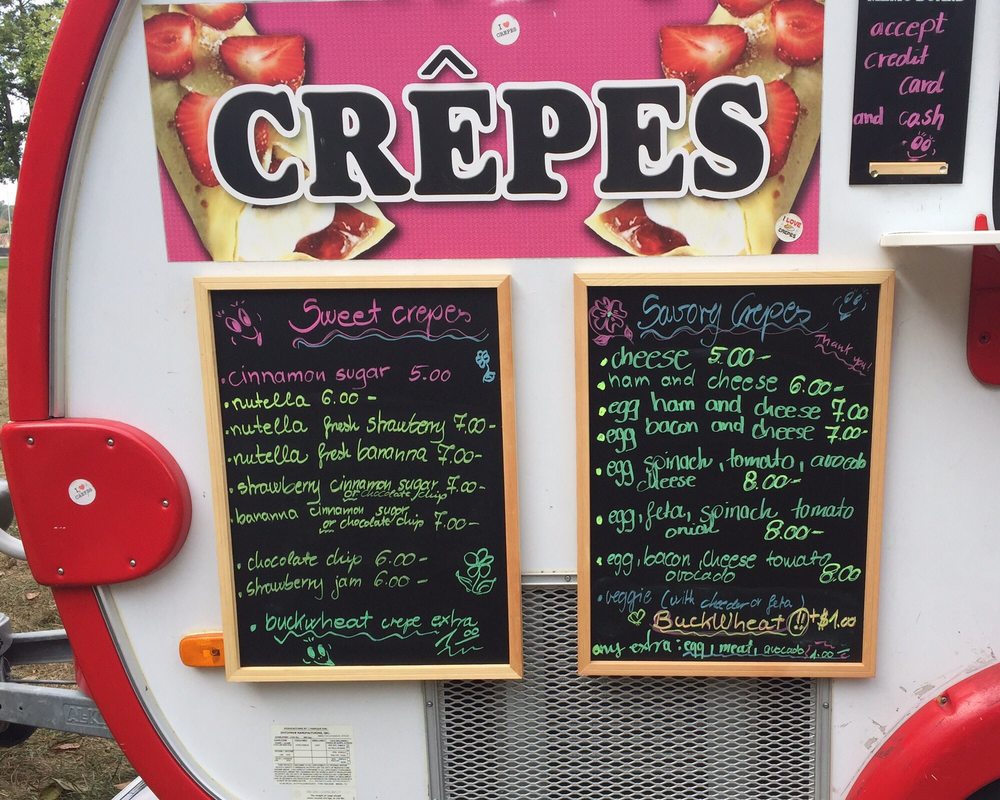 I ♥ CRÊPES
CRÊPES
I LOVE CREPES
accept
credit
card
and cash
Sweet crepes
• cinnamon sugar 5.00
• nutella 6.00 -
• nutella fresh strawberry 7.00-
• nutella fresh bananna 7.00-
• strawberry cinnamon sugar 7.00-
or chocolate chip
• bananna cinnamon sugar
or chocolate chip 7.00-
• chocolate chip 6.00-
• strawberry jam 6.00-
• buckwheat crepe extra
1.00
Savory Crepes
Thank you!
• cheese 5.00-
• ham and cheese 6.00-
• egg ham and cheese 7.00
• egg bacon and cheese 7.00-
• egg spinach, tomato, avocado
cheese 8.00-
• egg, feta, spinach tomato
onion 8.00-
• egg, bacon, cheese tomato
avocado 8.00
• veggie (with cheedar or feta)
BuckWheat !! +$1.00
any extra: egg, meat, avocado 1.00-
I ♥ CRÊPES